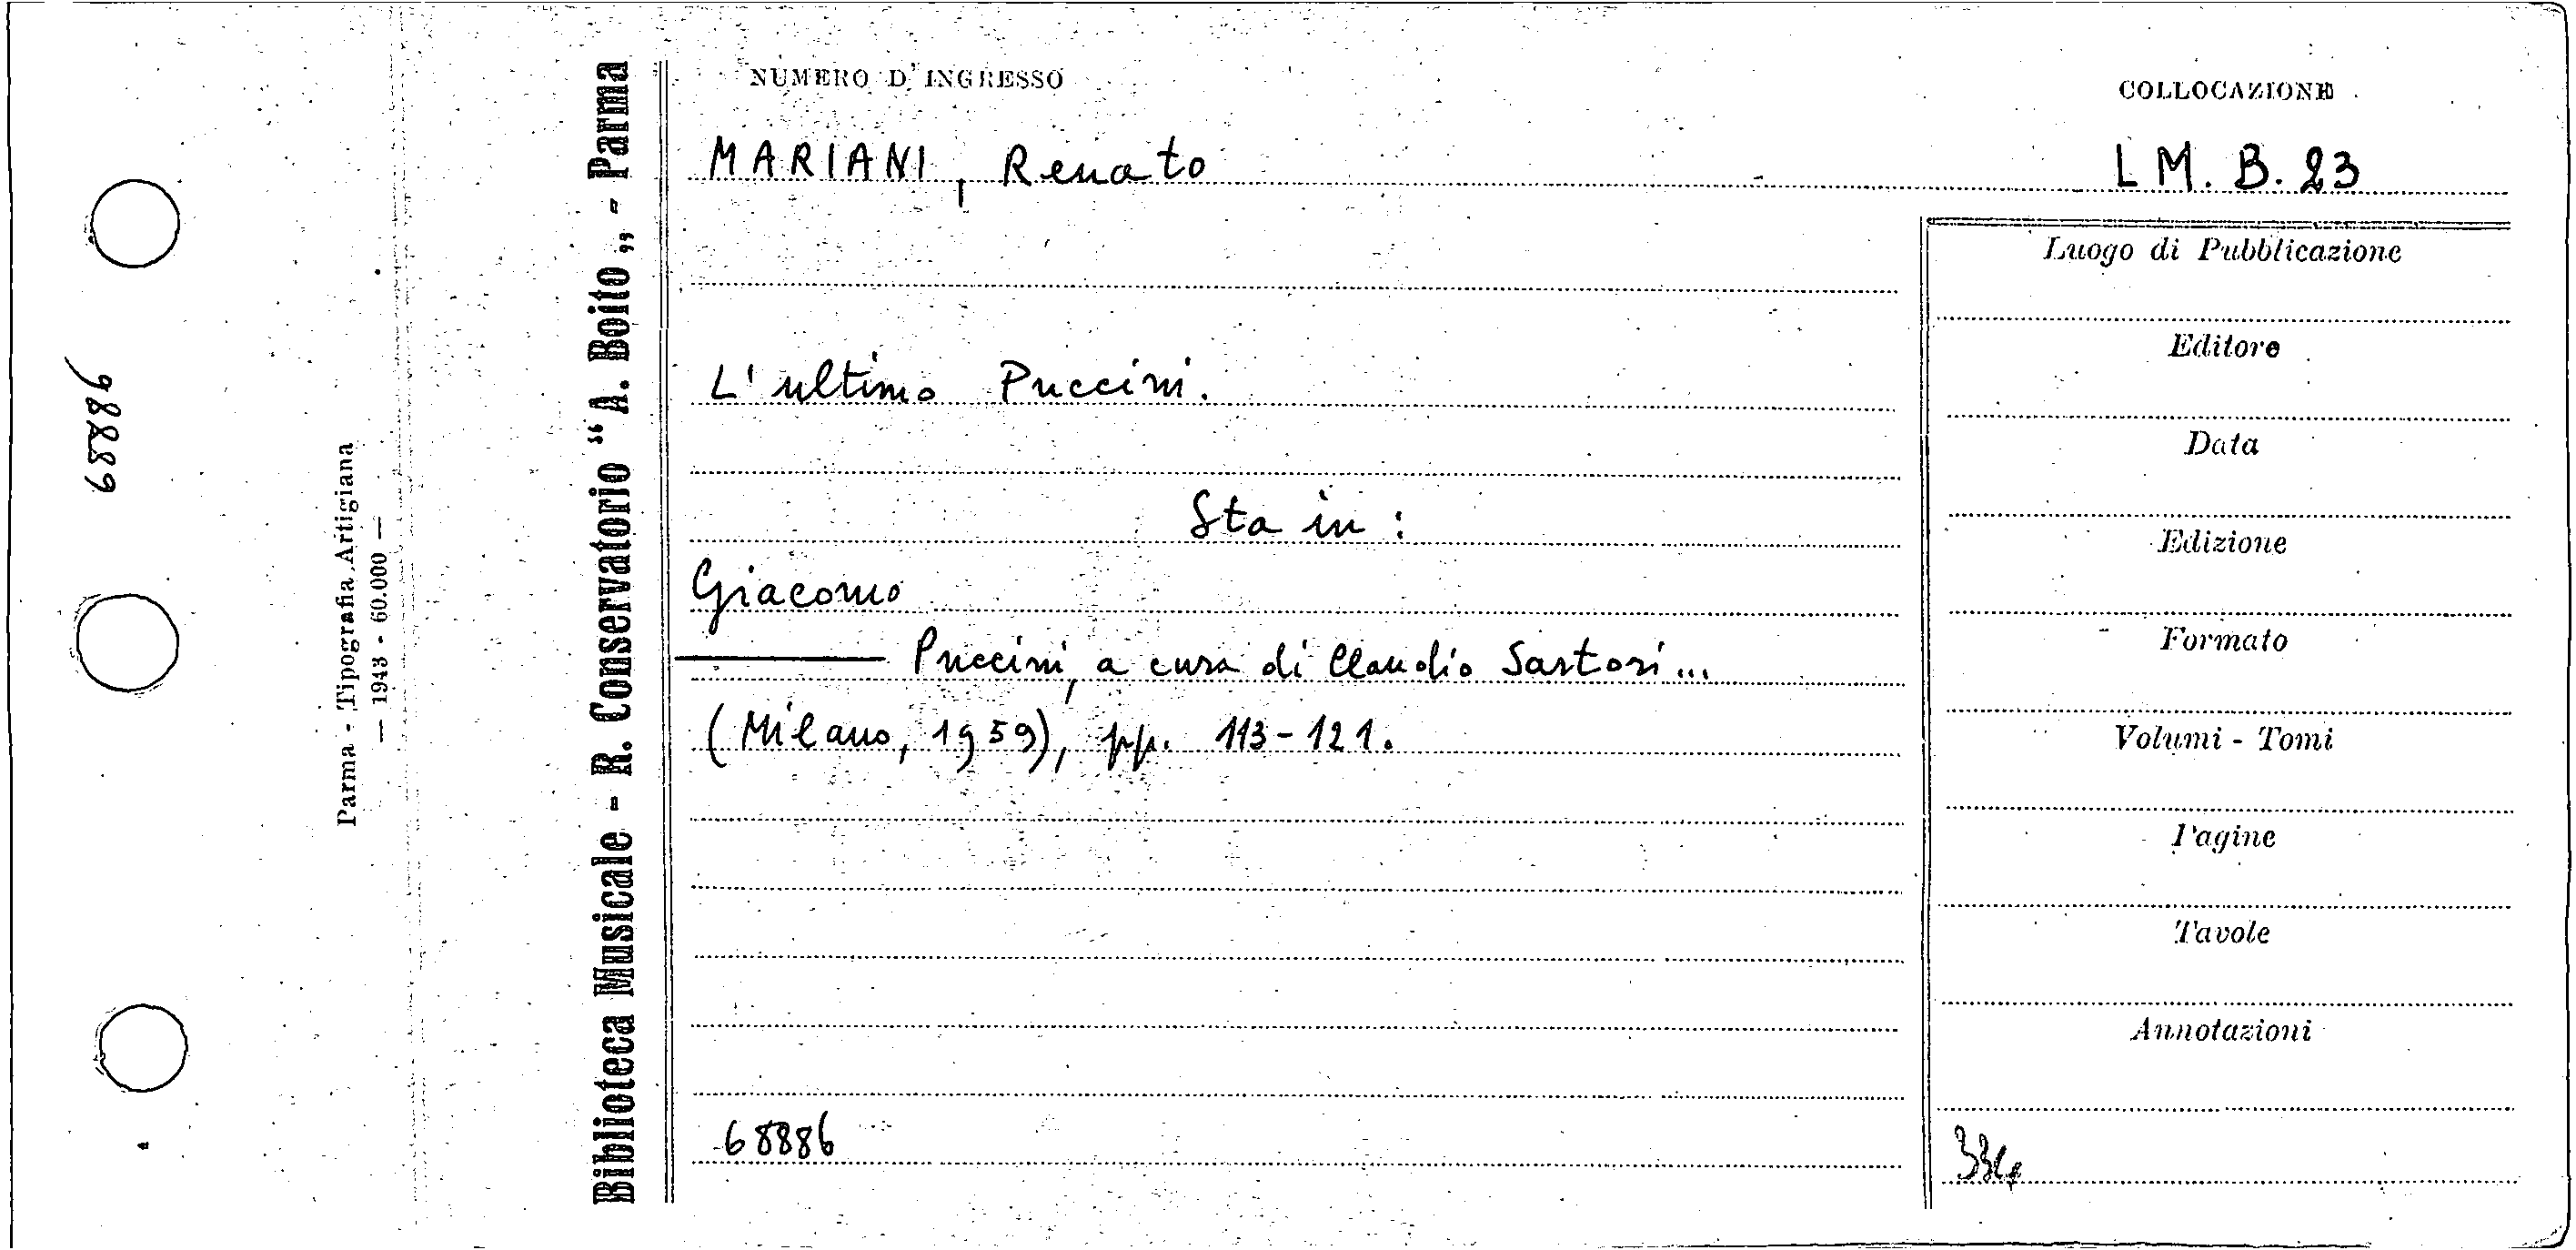 NUMERO D'INGRESSO
COLLOCAZIONE
MARIANI, Renato
LM. B. 23
L'ultimo Puccini.
Sta in :
Giacomo
Puccini, a cura di Claudio Sartori...
(Milano, 1959), pp. 113-121.
68886
Luogo di Pubblicazione
Editore
Data
Edizione
Formato
Volumi - Tomi
Pagine
Tavole
Annotazioni
Biblioteca Musicale - R. Conservatorio "A. Boito„ - Parma
Parma - Tipografia Artigiana
— 1943 - 60.000 —
68886